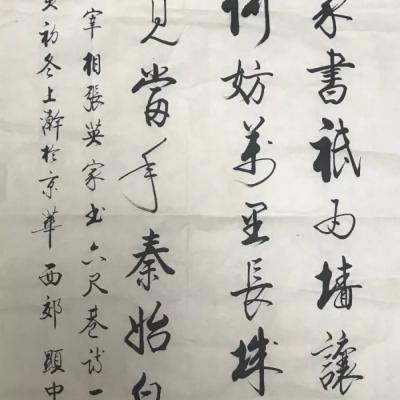 家書祗为墻讓
何妨萬里長城
見當年秦始皇
宰相張英家书六尺巷詩一
初冬上澣於京華西郊 顯中